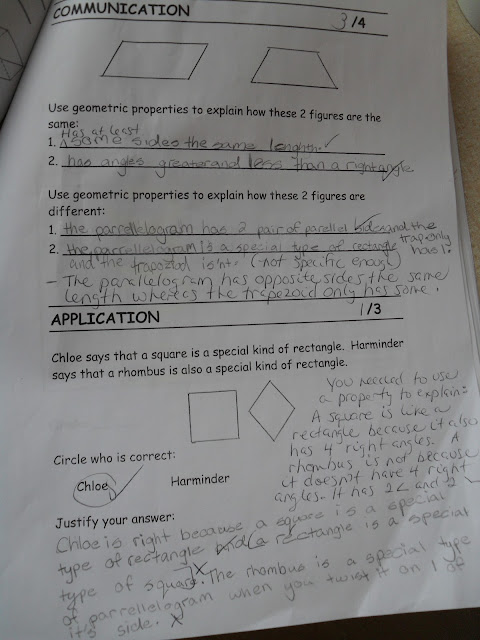 COMMUNICATION 3/4
Use geometric properties to explain how these 2 figures are the
same:
Has at least
1. some sides the same length.
2. has angles greater and less than a right angle
Use geometric properties to explain how these 2 figures are
different:
1. the parrellelogram has 2 pair of parallel sides and the
trap only
has 1.
2. the parrrellelogram is a special type of rectangle
and the trapozoid isn't. (not specific enough)
- The parallelogram has opposite sides the same
length whereas the trapezoid only has some.
APPLICATION 1/3
Chloe says that a square is a special kind of rectangle. Harminder
says that a rhombus is also a special kind of rectangle.
You needed to use
a property to explain:
A square is like a
rectangle because it also
has 4 right angles. A
rhombus is not because
it doesn't have 4 right
angles. It has 2< and 2
Circle who is correct:
Chloe Harminder
Justify your answer:
Chloe is right because a square is a special
type of rectangle and a rectangle is a special
type of square. The rhombus is a special type
of parrellelogram when you twist it on 1 of
it's side.